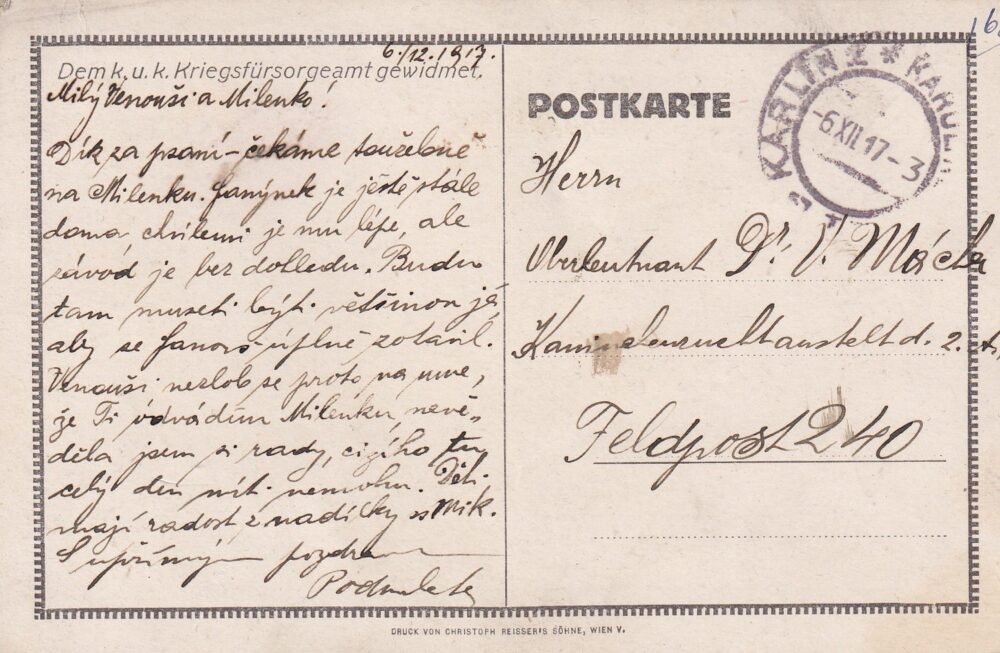 6./12. 1917.
Dem k. u. k. Kriegsfürsorgeamt gewidmet.
Milý Venouši a Milenko!
Dík za psaní – čekáme toužebně
na Milenku. Janýnek je ještě stále
doma, chvílemi je mu lépe, ale
závod je bez dohledu. Budu
tam museti býti většinou já,
aby se úplně zotavil.
Venouši nezlob se proto na mne,
že Ti odvádím Milenku, nevě-
děla jsem si rady, cizího tu
celý den míti nemohu. Děti
mají radost z nadílky s Mik.
S upřímným pozdravem
POSTKARTE
Herrn
Oberleutnant Dr. V. Mácha
d. 2.
Feldpost 240
KARLÍN 2 * KAROL
-6 XII 17 - 3
DRUCK VON CHRISTOPH REISSER'S SÖHNE, WIEN V.